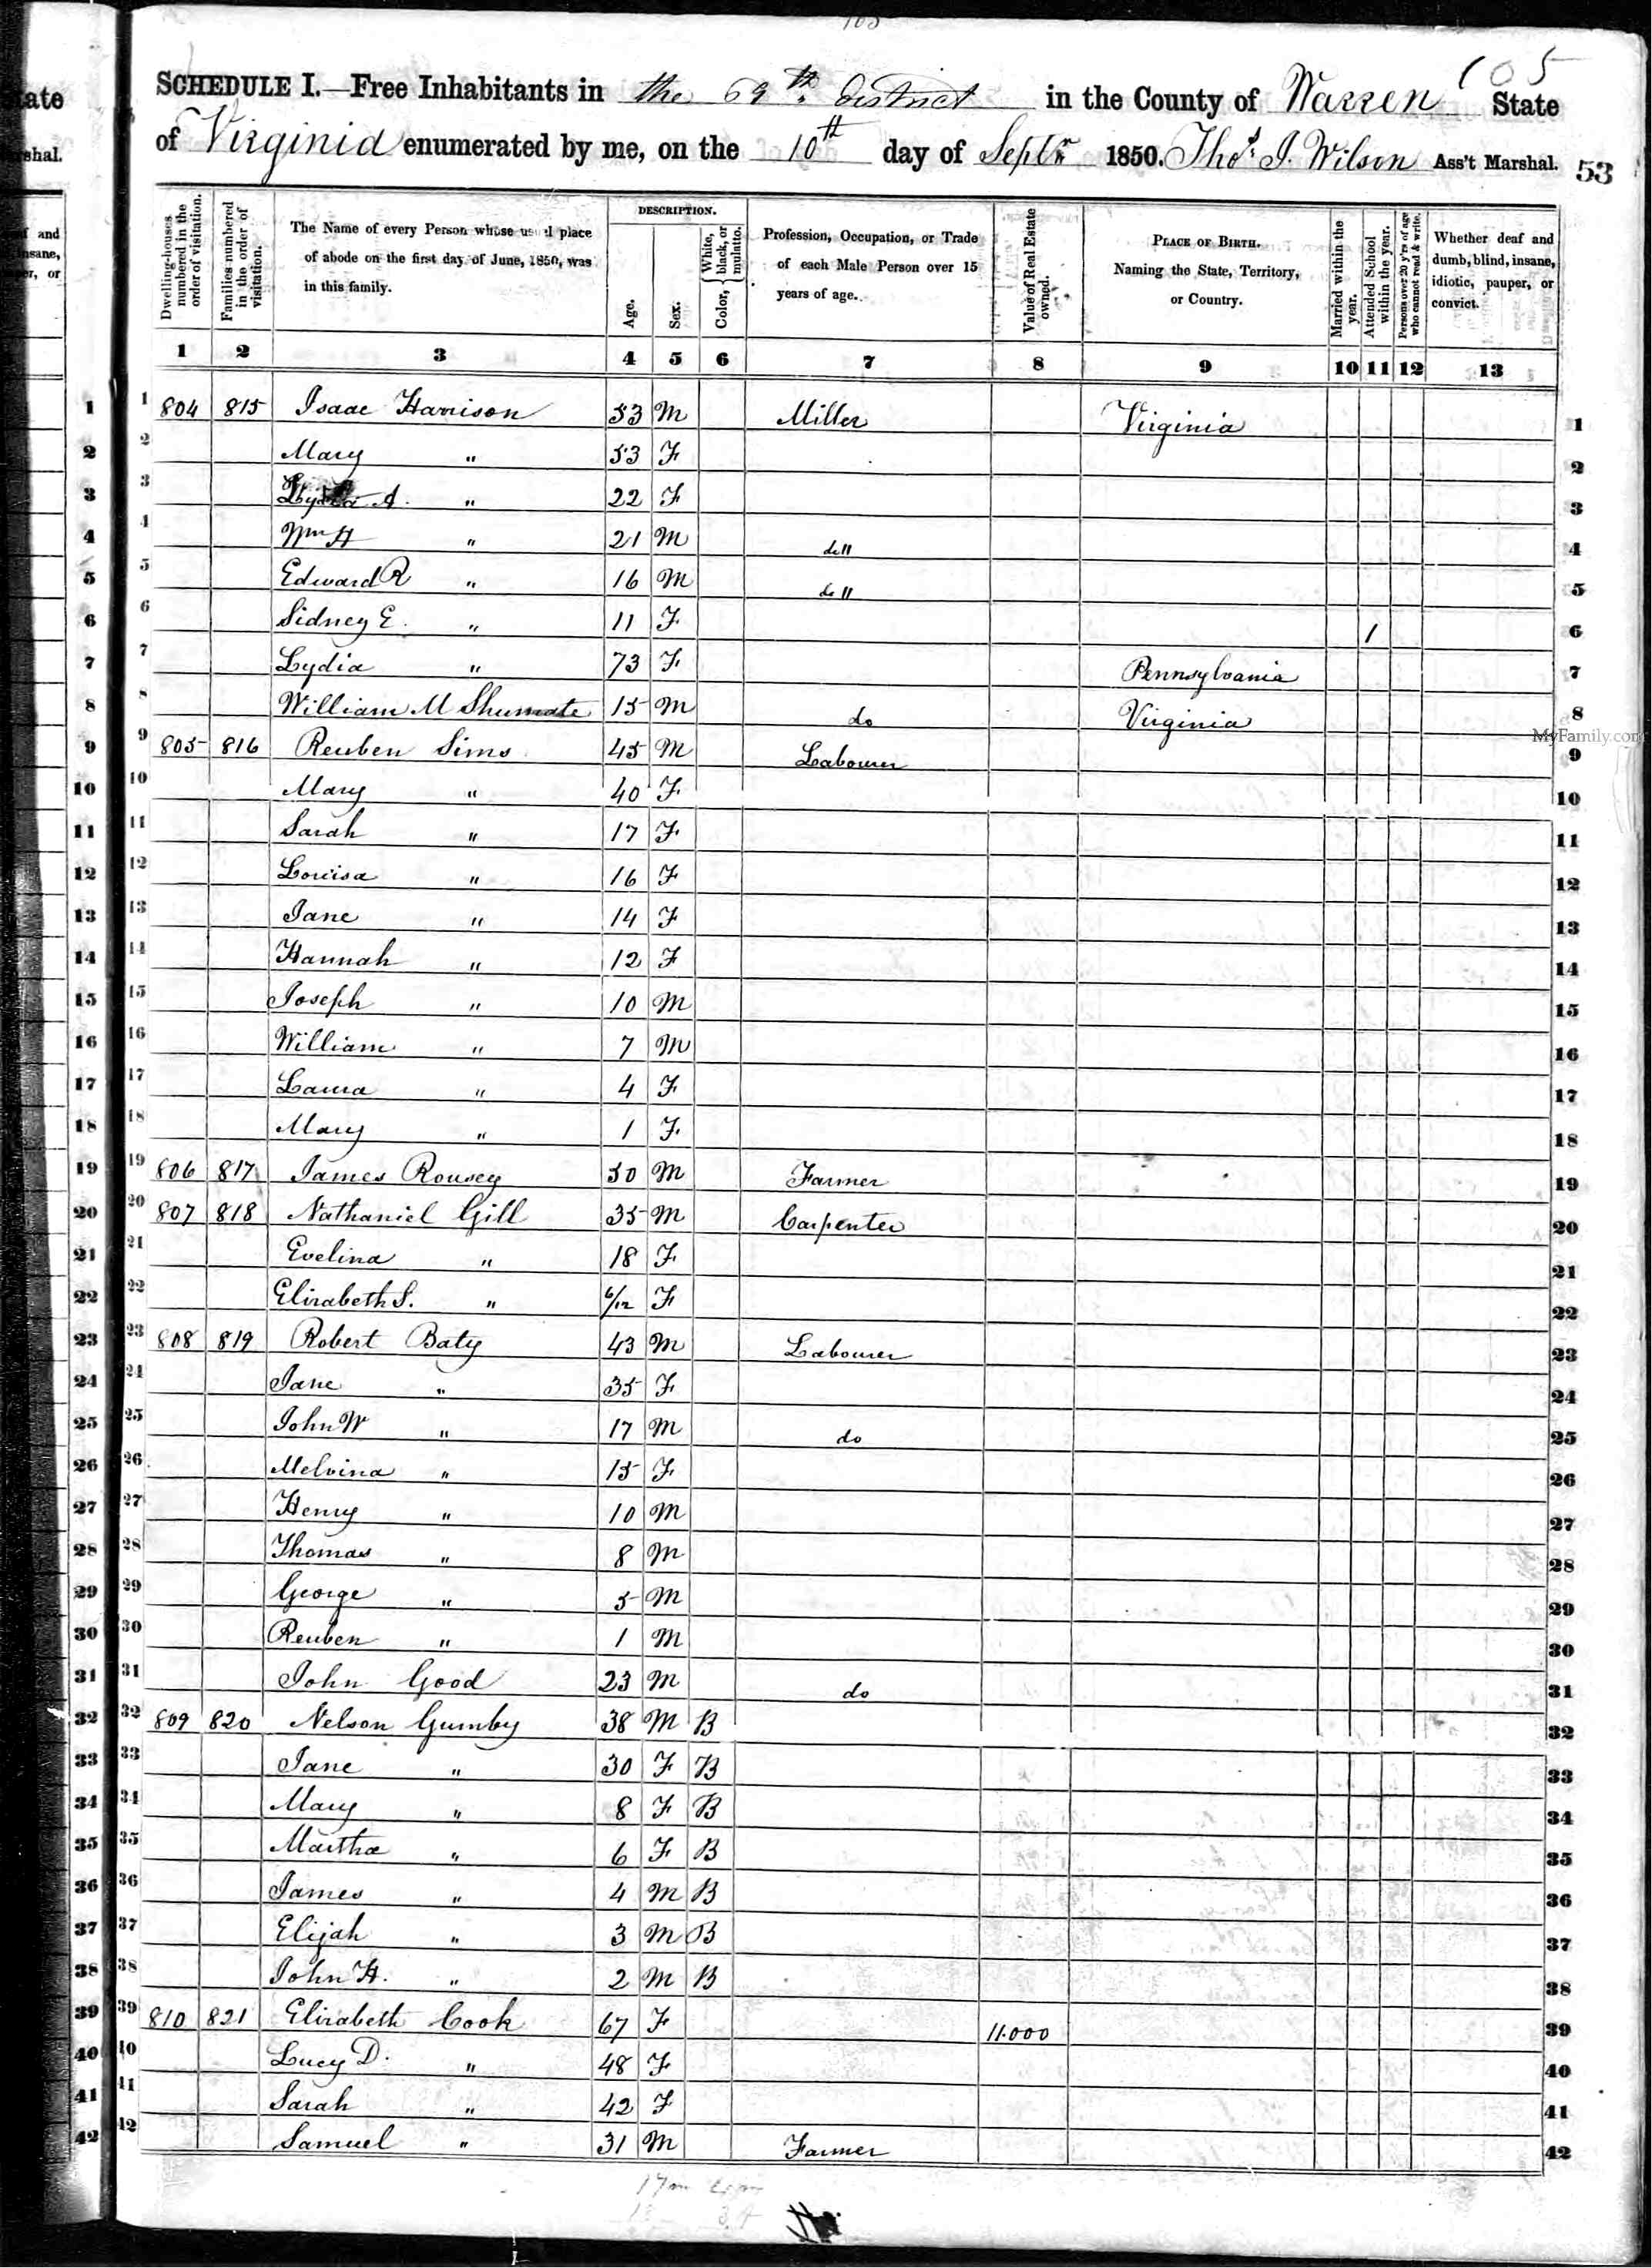 105
SCHEDULE I.—Free Inhabitants in the 69th district in the County of Warren State
of Virginia enumerated by me, on the 10th day of Septr 1850. Thos. J. Wilson Ass't Marshal. 53
Dwelling-houses numbered in the order of visitation.
Families numbered in the order of visitation.
The Name of every Person whose usual place of abode on the first day of June, 1850, was in this family.
DESCRIPTION.
Age.
Sex.
Color, White, black, or mulatto.
Profession, Occupation, or Trade of each Male Person over 15 years of age.
Value of Real Estate owned.
PLACE OF BIRTH. Naming the State, Territory, or Country.
Married within the year.
Attended School within the year.
Persons over 20 y'rs of age who cannot read & write.
Whether deaf and dumb, blind, insane, idiotic, pauper, or convict.
1 2 3 4 5 6 7 8 9 10 11 12 13
1 804 815 Isaac Harrison 53 M Miller Virginia 1
2 Mary " 53 F 2
3 Lydia A. " 22 F 3
4 Wm H " 21 M do " 4
5 Edward R " 16 M do " 5
6 Sidney E. " 11 F 1 6
7 Lydia " 73 F Pennsylvania 7
8 William M Shumate 15 M do Virginia 8
9 805 816 Reuben Sims 45 M Labourer 9
10 Mary " 40 F 10
11 Sarah " 17 F 11
12 Louisa " 16 F 12
13 Jane " 14 F 13
14 Hannah " 12 F 14
15 Joseph " 10 M 15
16 William " 7 M 16
17 Laura " 4 F 17
18 Mary " 1 F 18
19 806 817 James Rousey 50 M Farmer 19
20 807 818 Nathaniel Gill 35 M Carpenter 20
21 Evelina " 18 F 21
22 Elizabeth S. " 6/12 F 22
23 808 819 Robert Baty 43 M Labourer 23
24 Jane " 35 F 24
25 John W " 17 M do 25
26 Melvina " 15 F 26
27 Henry " 10 M 27
28 Thomas " 8 M 28
29 George " 5 M 29
30 Reuben " 1 M 30
31 John Good 23 M do 31
32 809 820 Nelson Gumby 38 M B 32
33 Jane " 30 F B 33
34 Mary " 8 F B 34
35 Martha " 6 F B 35
36 James " 4 M B 36
37 Elijah " 3 M B 37
38 John H. " 2 M B 38
39 810 821 Elizabeth Cook 67 F 11.000 39
40 Lucy D. " 48 F 40
41 Sarah " 42 F 41
42 Samuel " 31 M Farmer 42
MyFamily.com